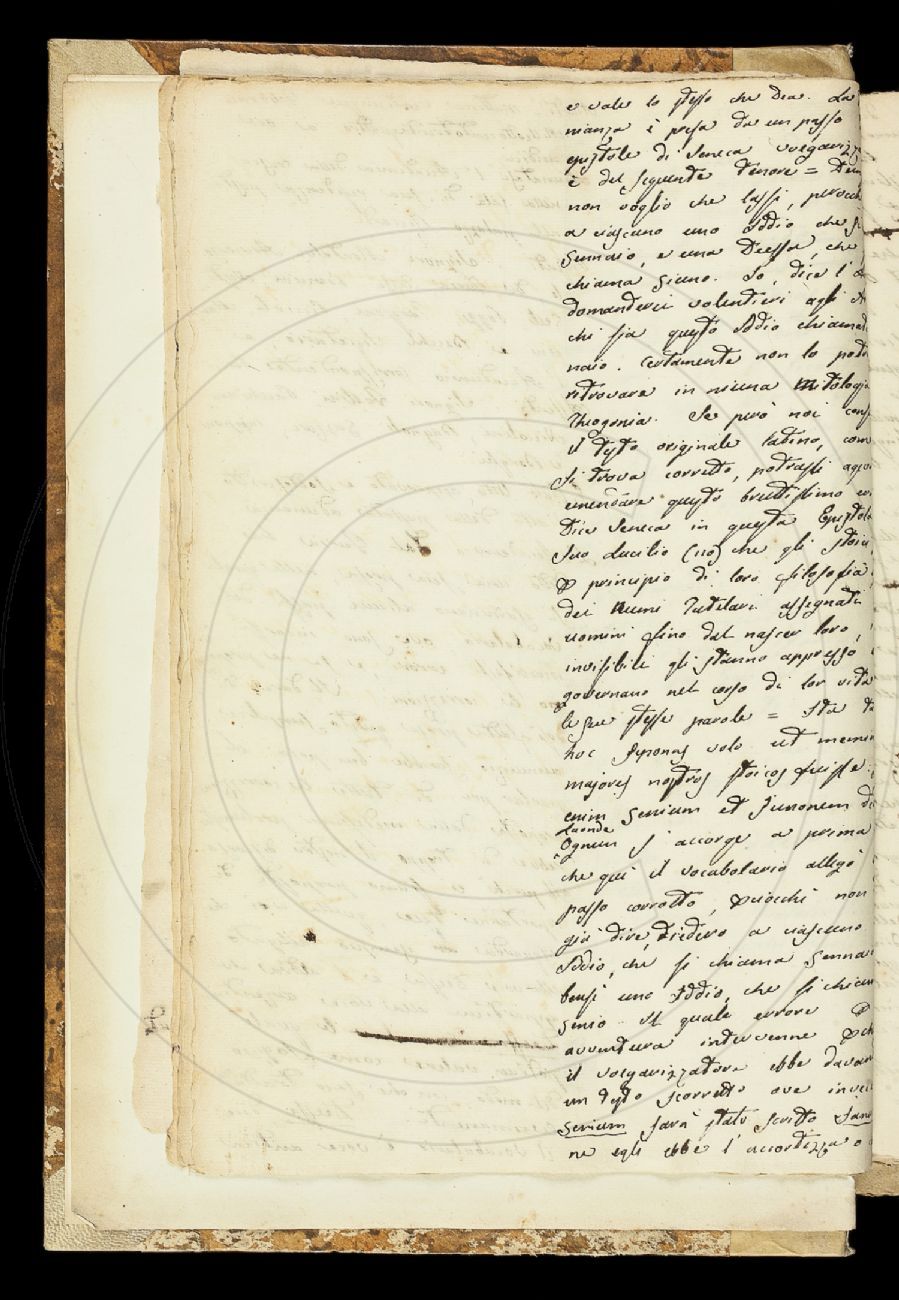 e vale lo stesso che Dea. La
nianza è presa da un passo
epistole di Seneca volgarizz
è del seguente tenore = Dein
non voglio che lassi, perocch
a ciascuno uno Iddio che si
Gennaio, e una Deessa, che
chiama Giuno. Io, dice l'
domanderei volentieri agli
chi sia questo Iddio chiamat
naio. Certamente non lo potr
ritrovare in niuna Mitologia
Theogonia. Se però noi cons
il testo originale latino, com
si trova corretto, potrassi agev
emendare questo bruttissimo er
Dice Seneca in questa Epistola
suo Lucilio (110) che gli stoici
P principio di loro filosofia
dei Numi Tutelari assegnati
uomini fino dal nascer loro,
invisibili gli stanno appresso
governano nel corso di lor vita
le sue stesse parole = Ita ta
hoc seponas volo ut memin
majores nostros stoicos fuisse
enim Genium et Junonem de
Laonde
Ognun s'accorge a prima
che qui il vocabolario allegò
passo corrotto, Pciocchè non
già dire, diedero a ciascuno
Iddio, che si chiama Genna
bensì uno Iddio, che si chiam
Genio. Il quale errore P
avventura intervenne Pch
il volgarizzatore ebbe davan
un testo scorretto ove invec
Genium sarà stato scritto Jan
ne egli ebbe l'accortezza o